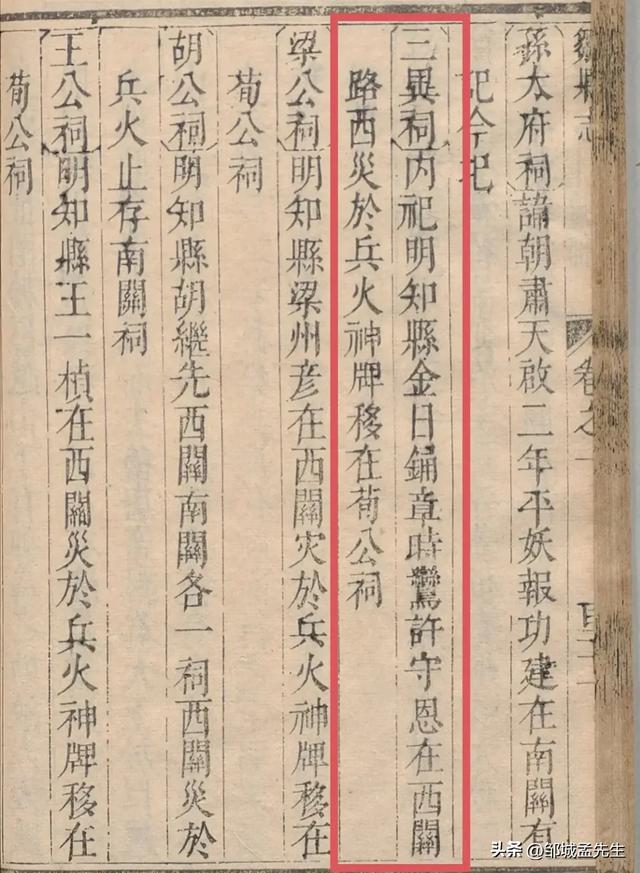 鄒縣志
卷之一
孫太府祠諱朝肅天啟二年平妖報功建在南關有
記今圮
三異祠內祀明知縣金日鋪章時鸞許守恩在西關
路西災於兵火神牌移在荀公祠
梁公祠明知縣梁州彥在西關灾於兵火神牌移在
荀公祠
胡公祠明知縣胡繼先西關南關各一祠西關災於
兵火止存南關祠
王公祠明知縣王一楨在西關災於兵火神牌移在
荀公祠
头条 @邹城孟先生